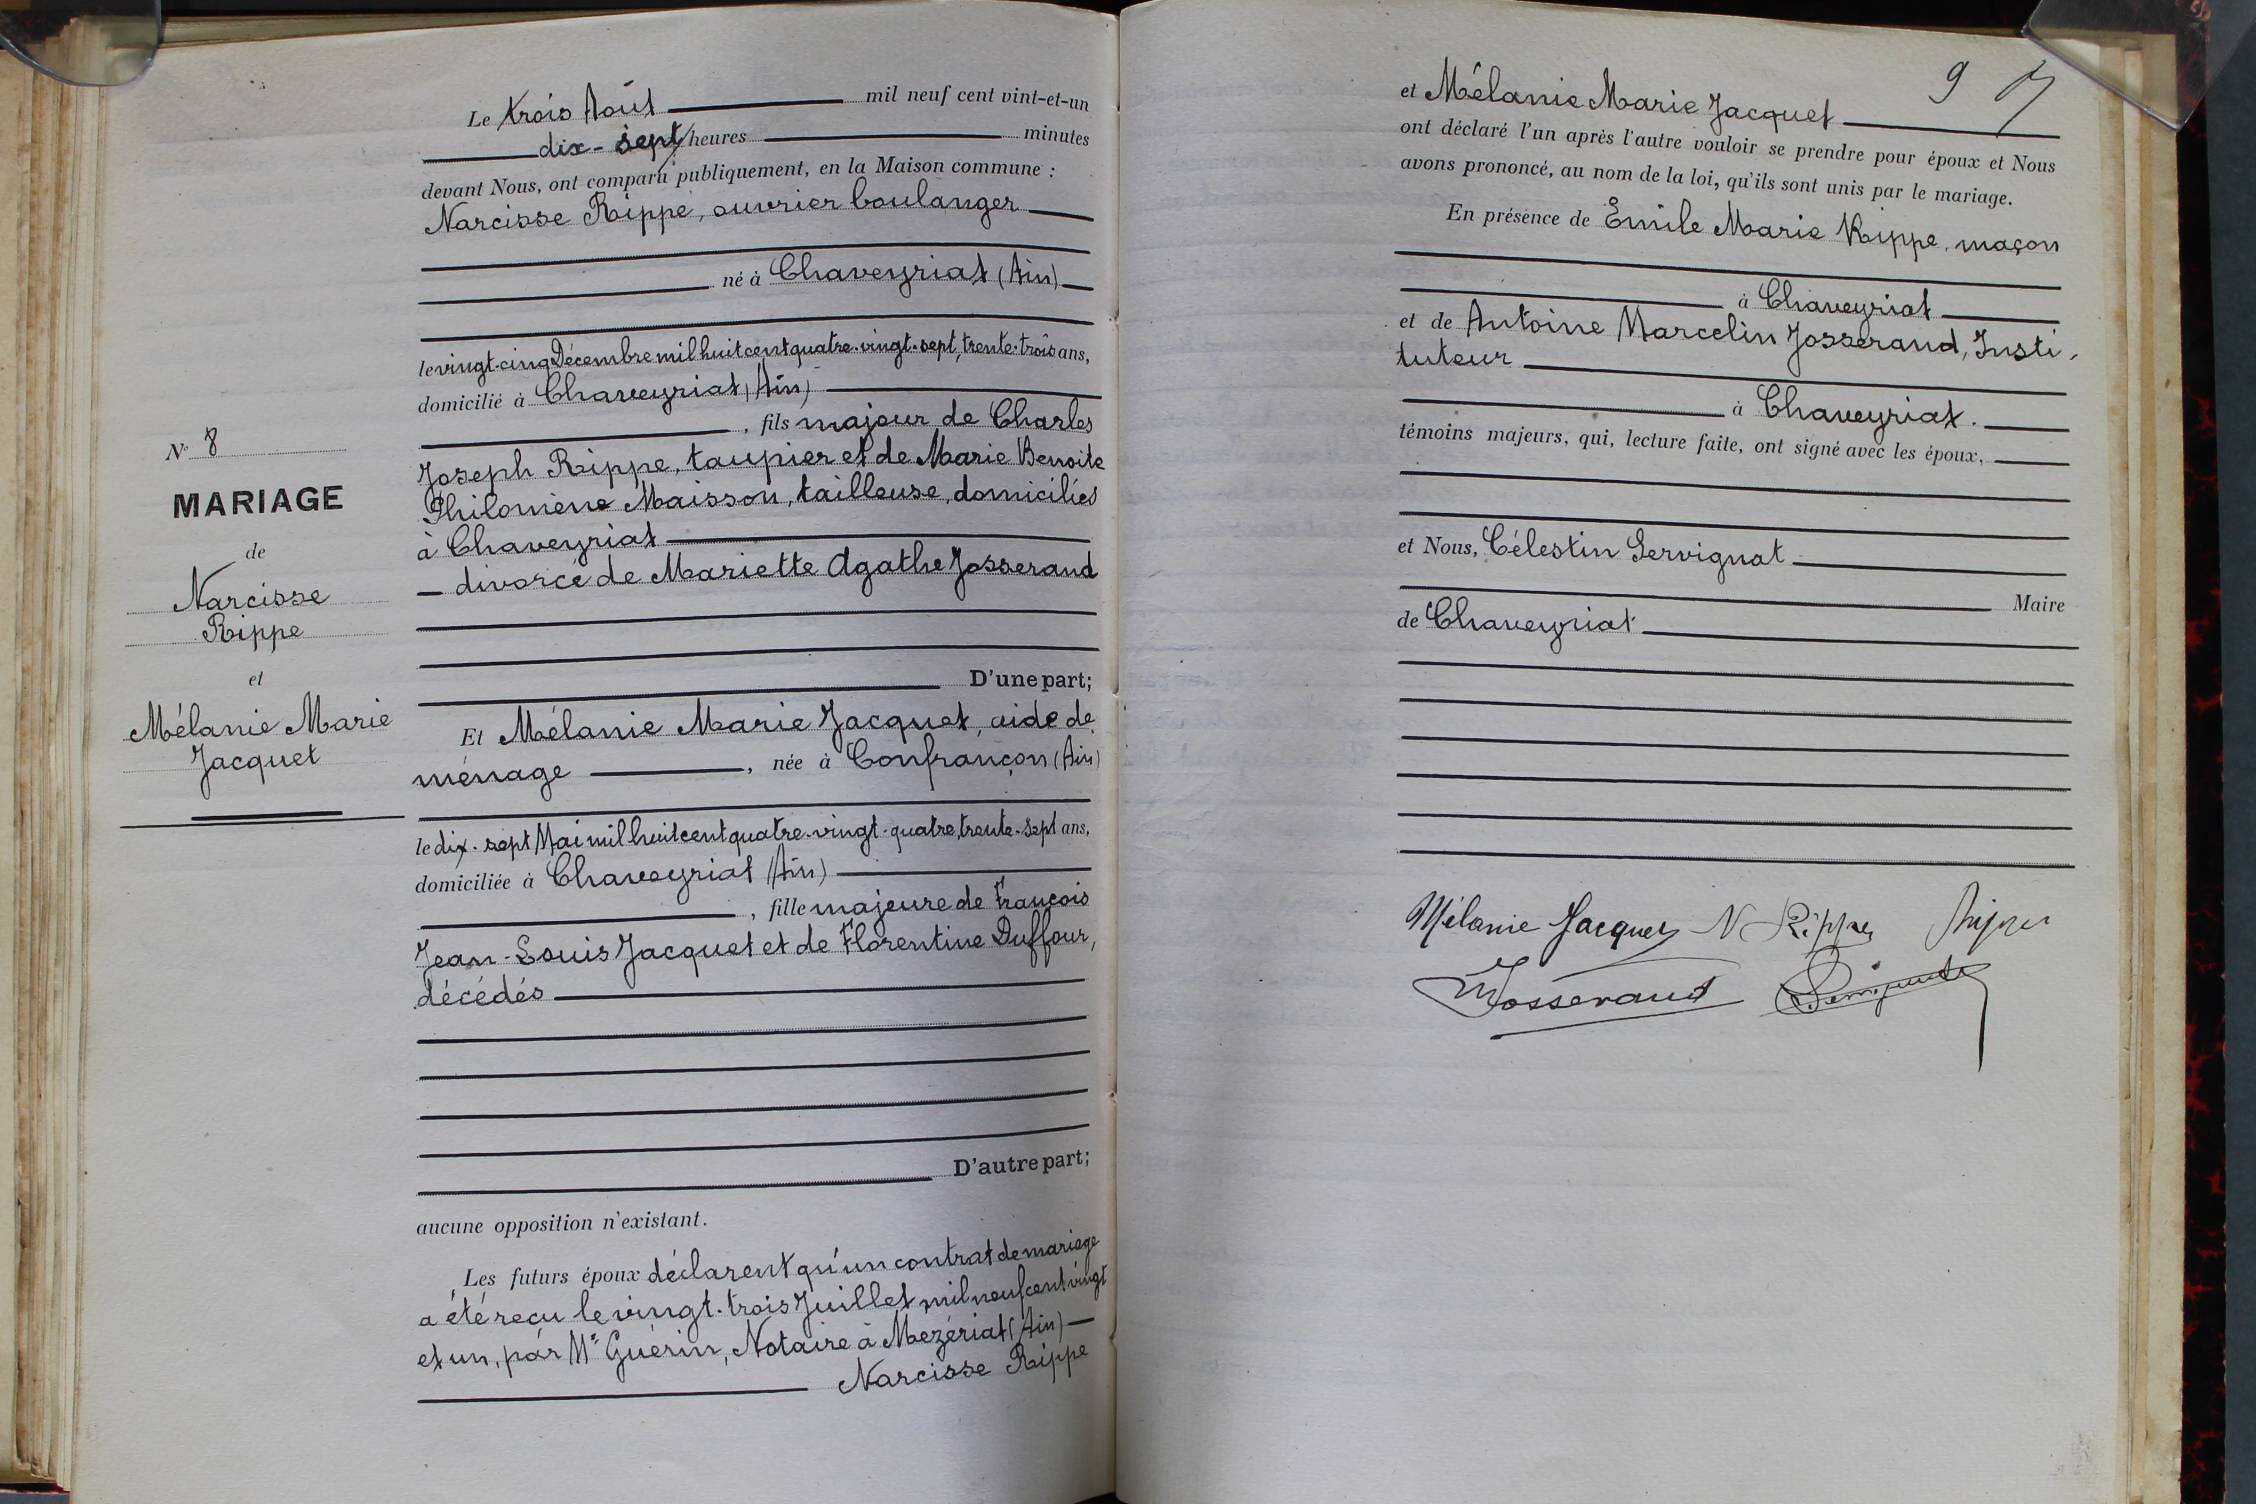 Le trois Août mil neuf cent vint-et-un
dix-sept heures minutes
devant Nous, ont comparu publiquement, en la Maison commune :
Narcisse Rippe, ouvrier boulanger
né à Chaveyriat (Ain)
le vingt-cinq Décembre mil huit cent quatre-vingt-sept, trente-trois ans,
domicilié à Chaveyriat (Ain)
, fils majeur de Charles
Joseph Rippe, taupier et de Marie Benoite
Philomène Maisson, tailleuse, domiciliés
à Chaveyriat
divorcé de Mariette Agathe Josserand
D'une part;
N° 8
MARIAGE
de
Narcisse
Rippe
et
Mélanie Marie
Jacquet
Et Mélanie Marie Jacquet, aide de
ménage , née à Confrançon (Ain)
le dix-sept Mai mil huit cent quatre-vingt-quatre, trente-sept ans,
domiciliée à Chaveyriat (Ain)
, fille majeure de François
Jean-Louis Jacquet et de Florentine Duffour,
décédés
D'autre part;
aucune opposition n'existant.
Les futurs époux déclarent qu'un contrat de mariage
a été reçu le vingt-trois Juillet mil neuf cent vingt
et un, par Me Guérin, Notaire à Mezériat (Ain)
Narcisse Rippe
9
et Mélanie Marie Jacquet
ont déclaré l'un après l'autre vouloir se prendre pour époux et Nous
avons prononcé, au nom de la loi, qu'ils sont unis par le mariage.
En présence de Emile Marie Rippe, maçon
à Chaveyriat
et de Antoine Marcelin Josserand, Insti-
tuteur
à Chaveyriat.
témoins majeurs, qui, lecture faite, ont signé avec les époux,
et Nous, Célestin Servignat
Maire
de Chaveyriat
Mélanie Jacquet N Rippe Rippe
Josserand Servignat